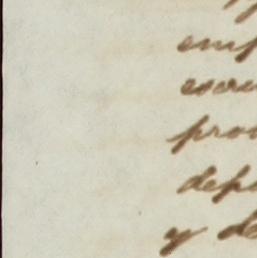 emp
escri
pro
depo
y de